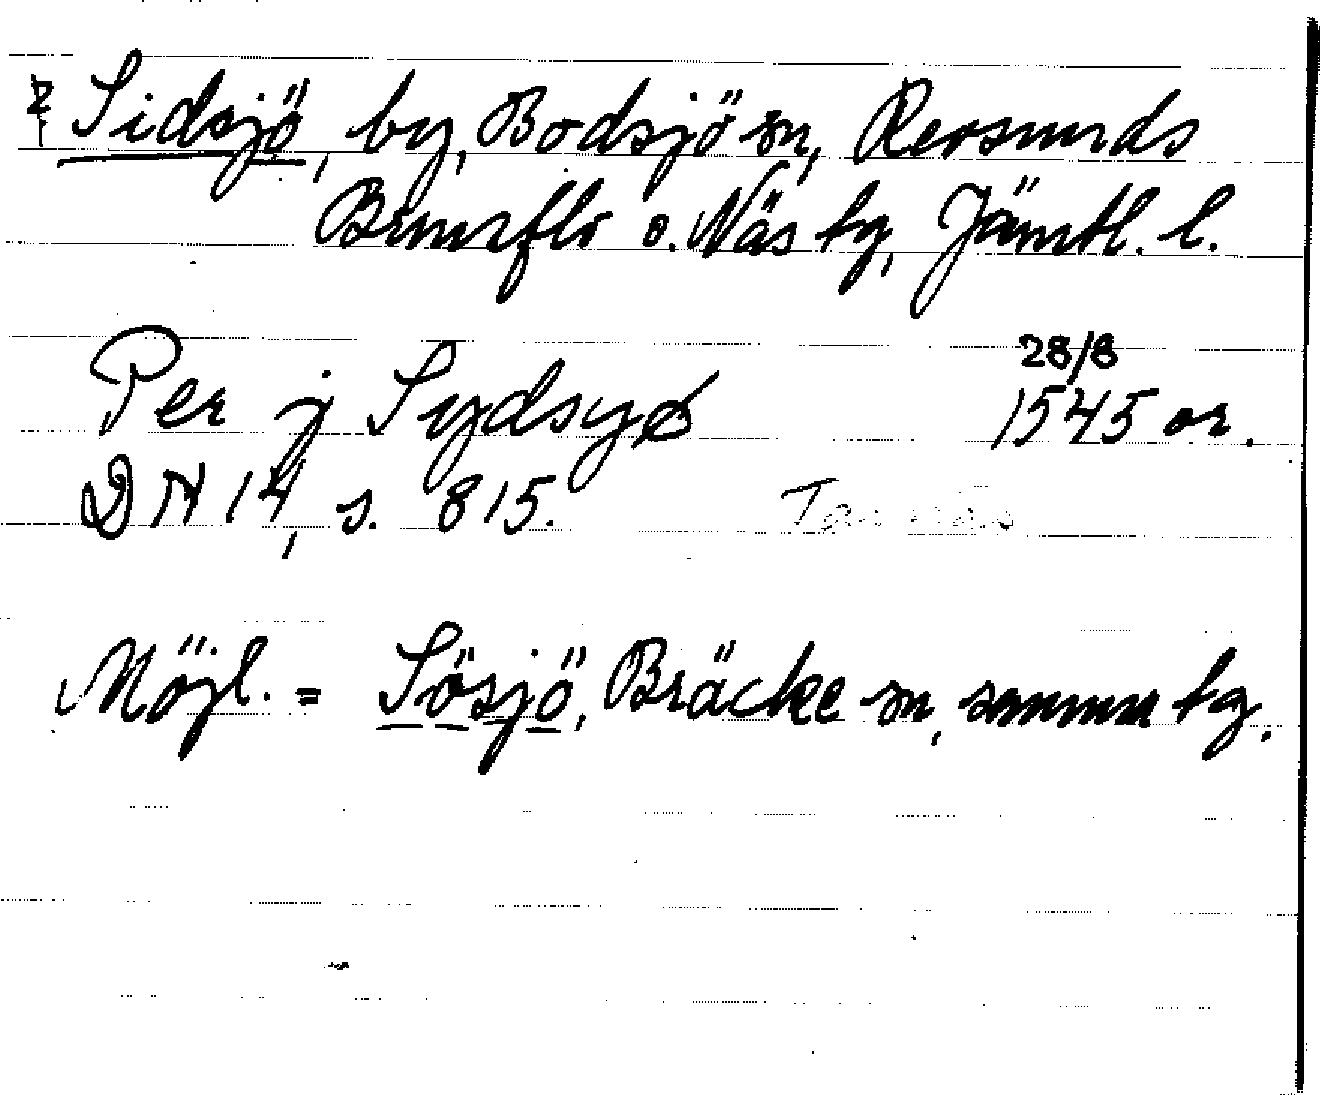 ? Sidsjö, by, Bodsjö sn, Revsunds
Brunflo o. Näs tg, Jämtl. l.
28/8
Per j Sydsyø 1545 or.
DN 14, s. 815.
Möjl. = Sösjö, Bräcke sn, samma tg.